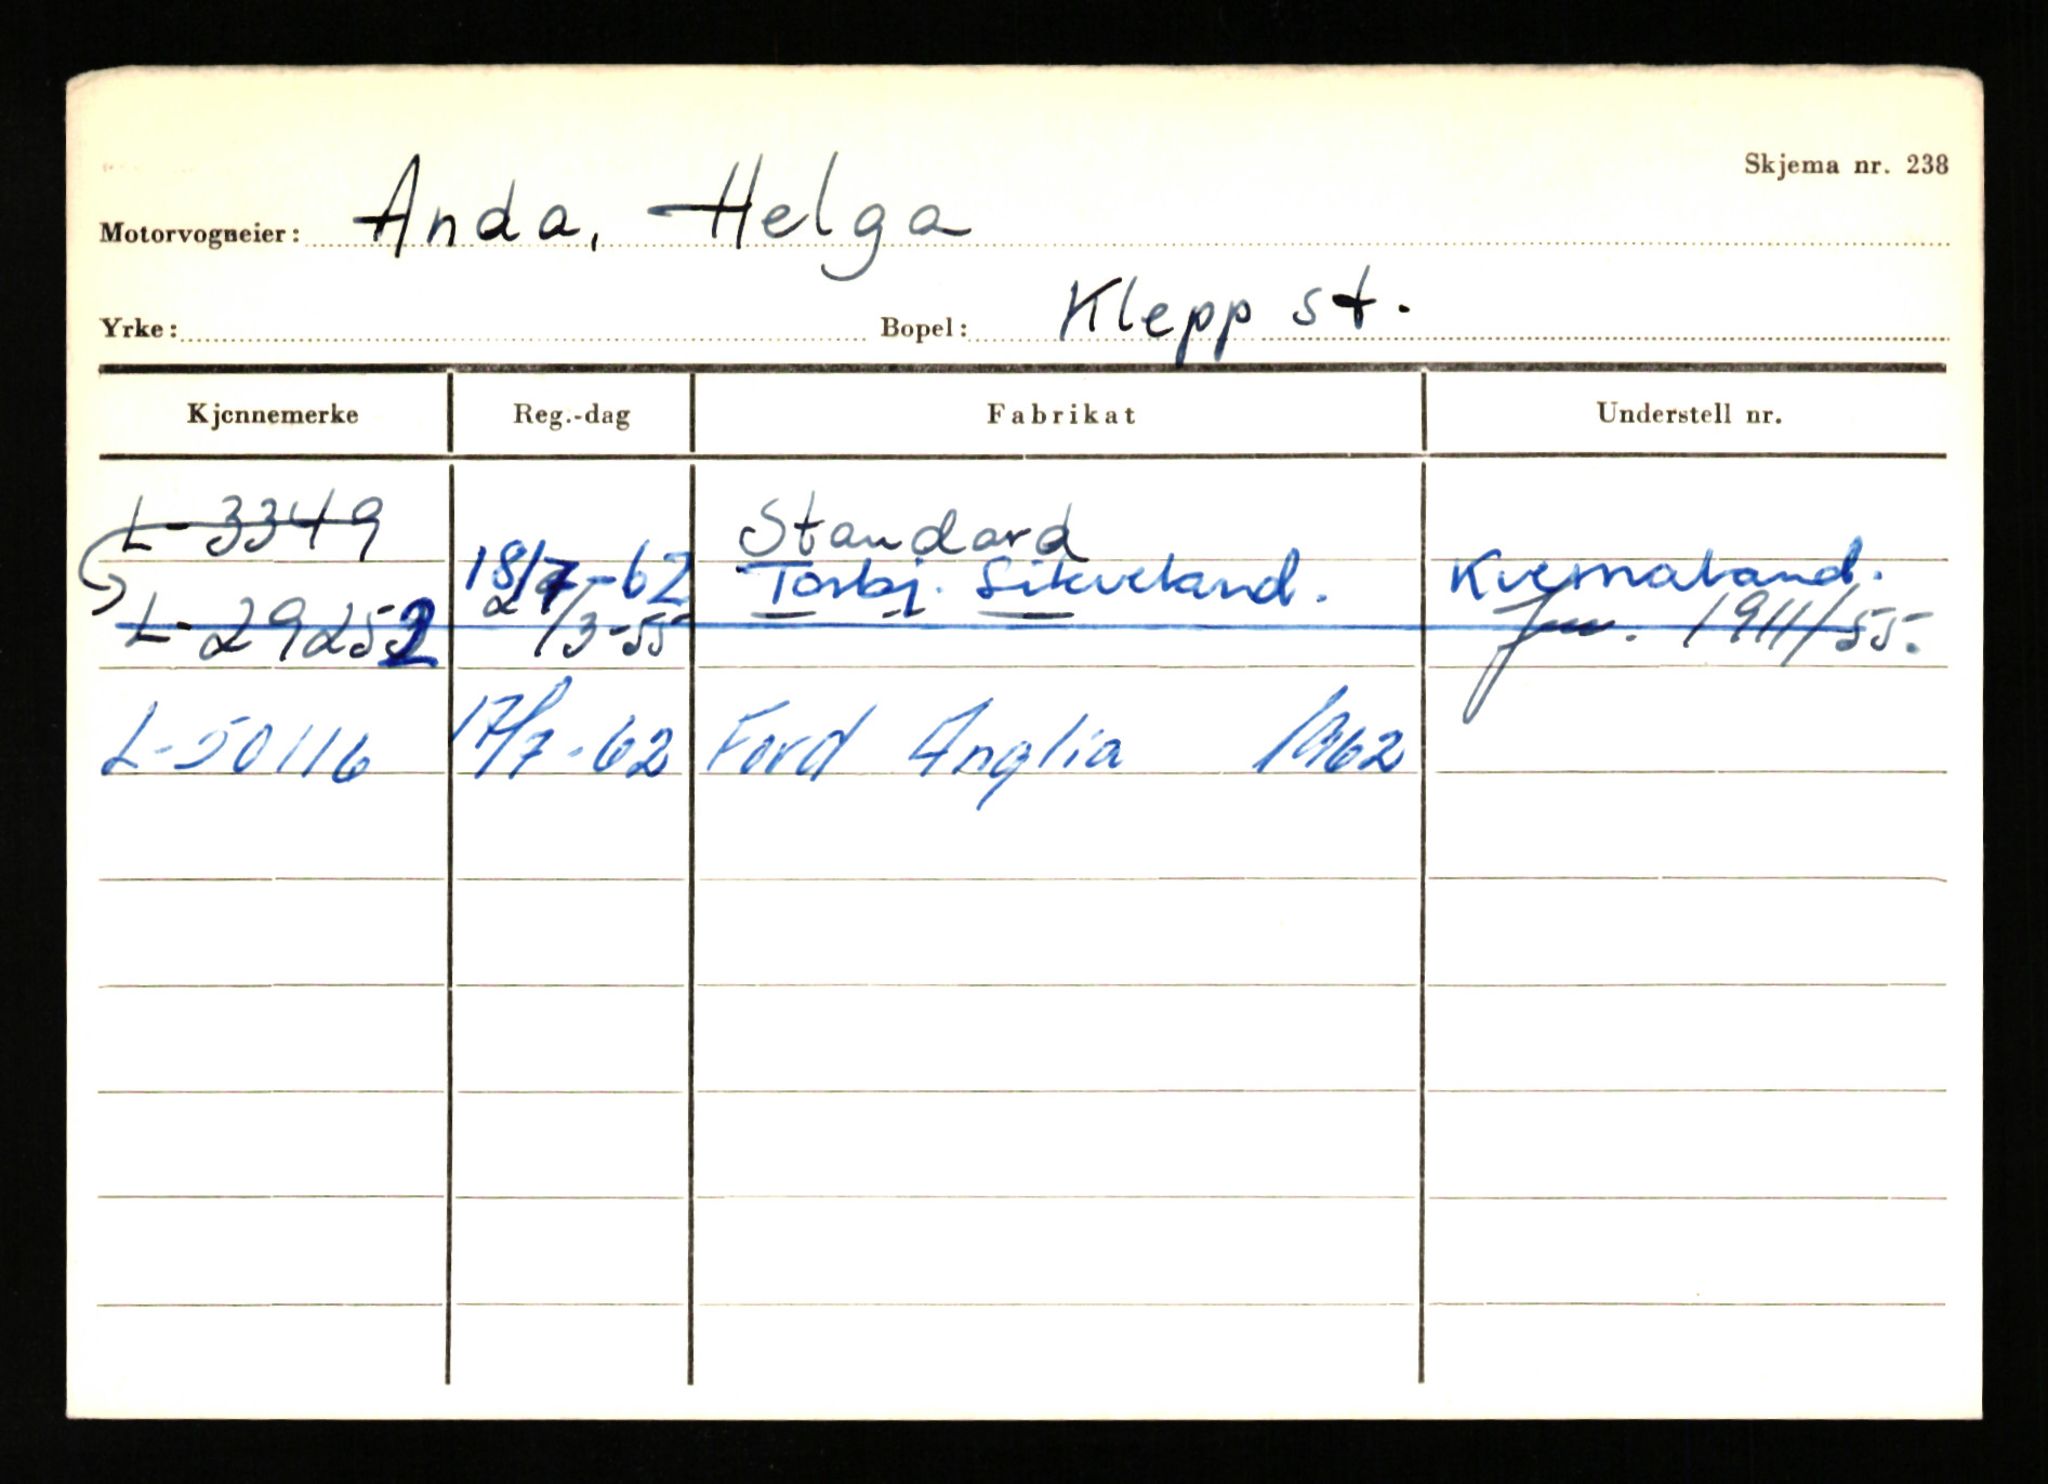 Skjema nr. 238
Motorvogneier: Anda, Helga
Yrke: Bopel: Klepp st.
Kjennemerke Reg.-dag Fabrikat Understell nr.
L-3349 Standard
18/7-62 Torbj. Sikveland. Kvernaland.
L-29252 29/3-55 Jnr. 1911/55.
L-50116 17/7-62 Ford Anglia 1962